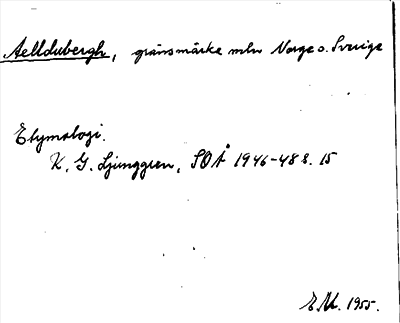 Aelldubergh, gränsmärke mln Norge o. Sverige
Etymologi.
K. G. Ljunggren, SOÅ 1946-48 s. 15
E.M. 1955.